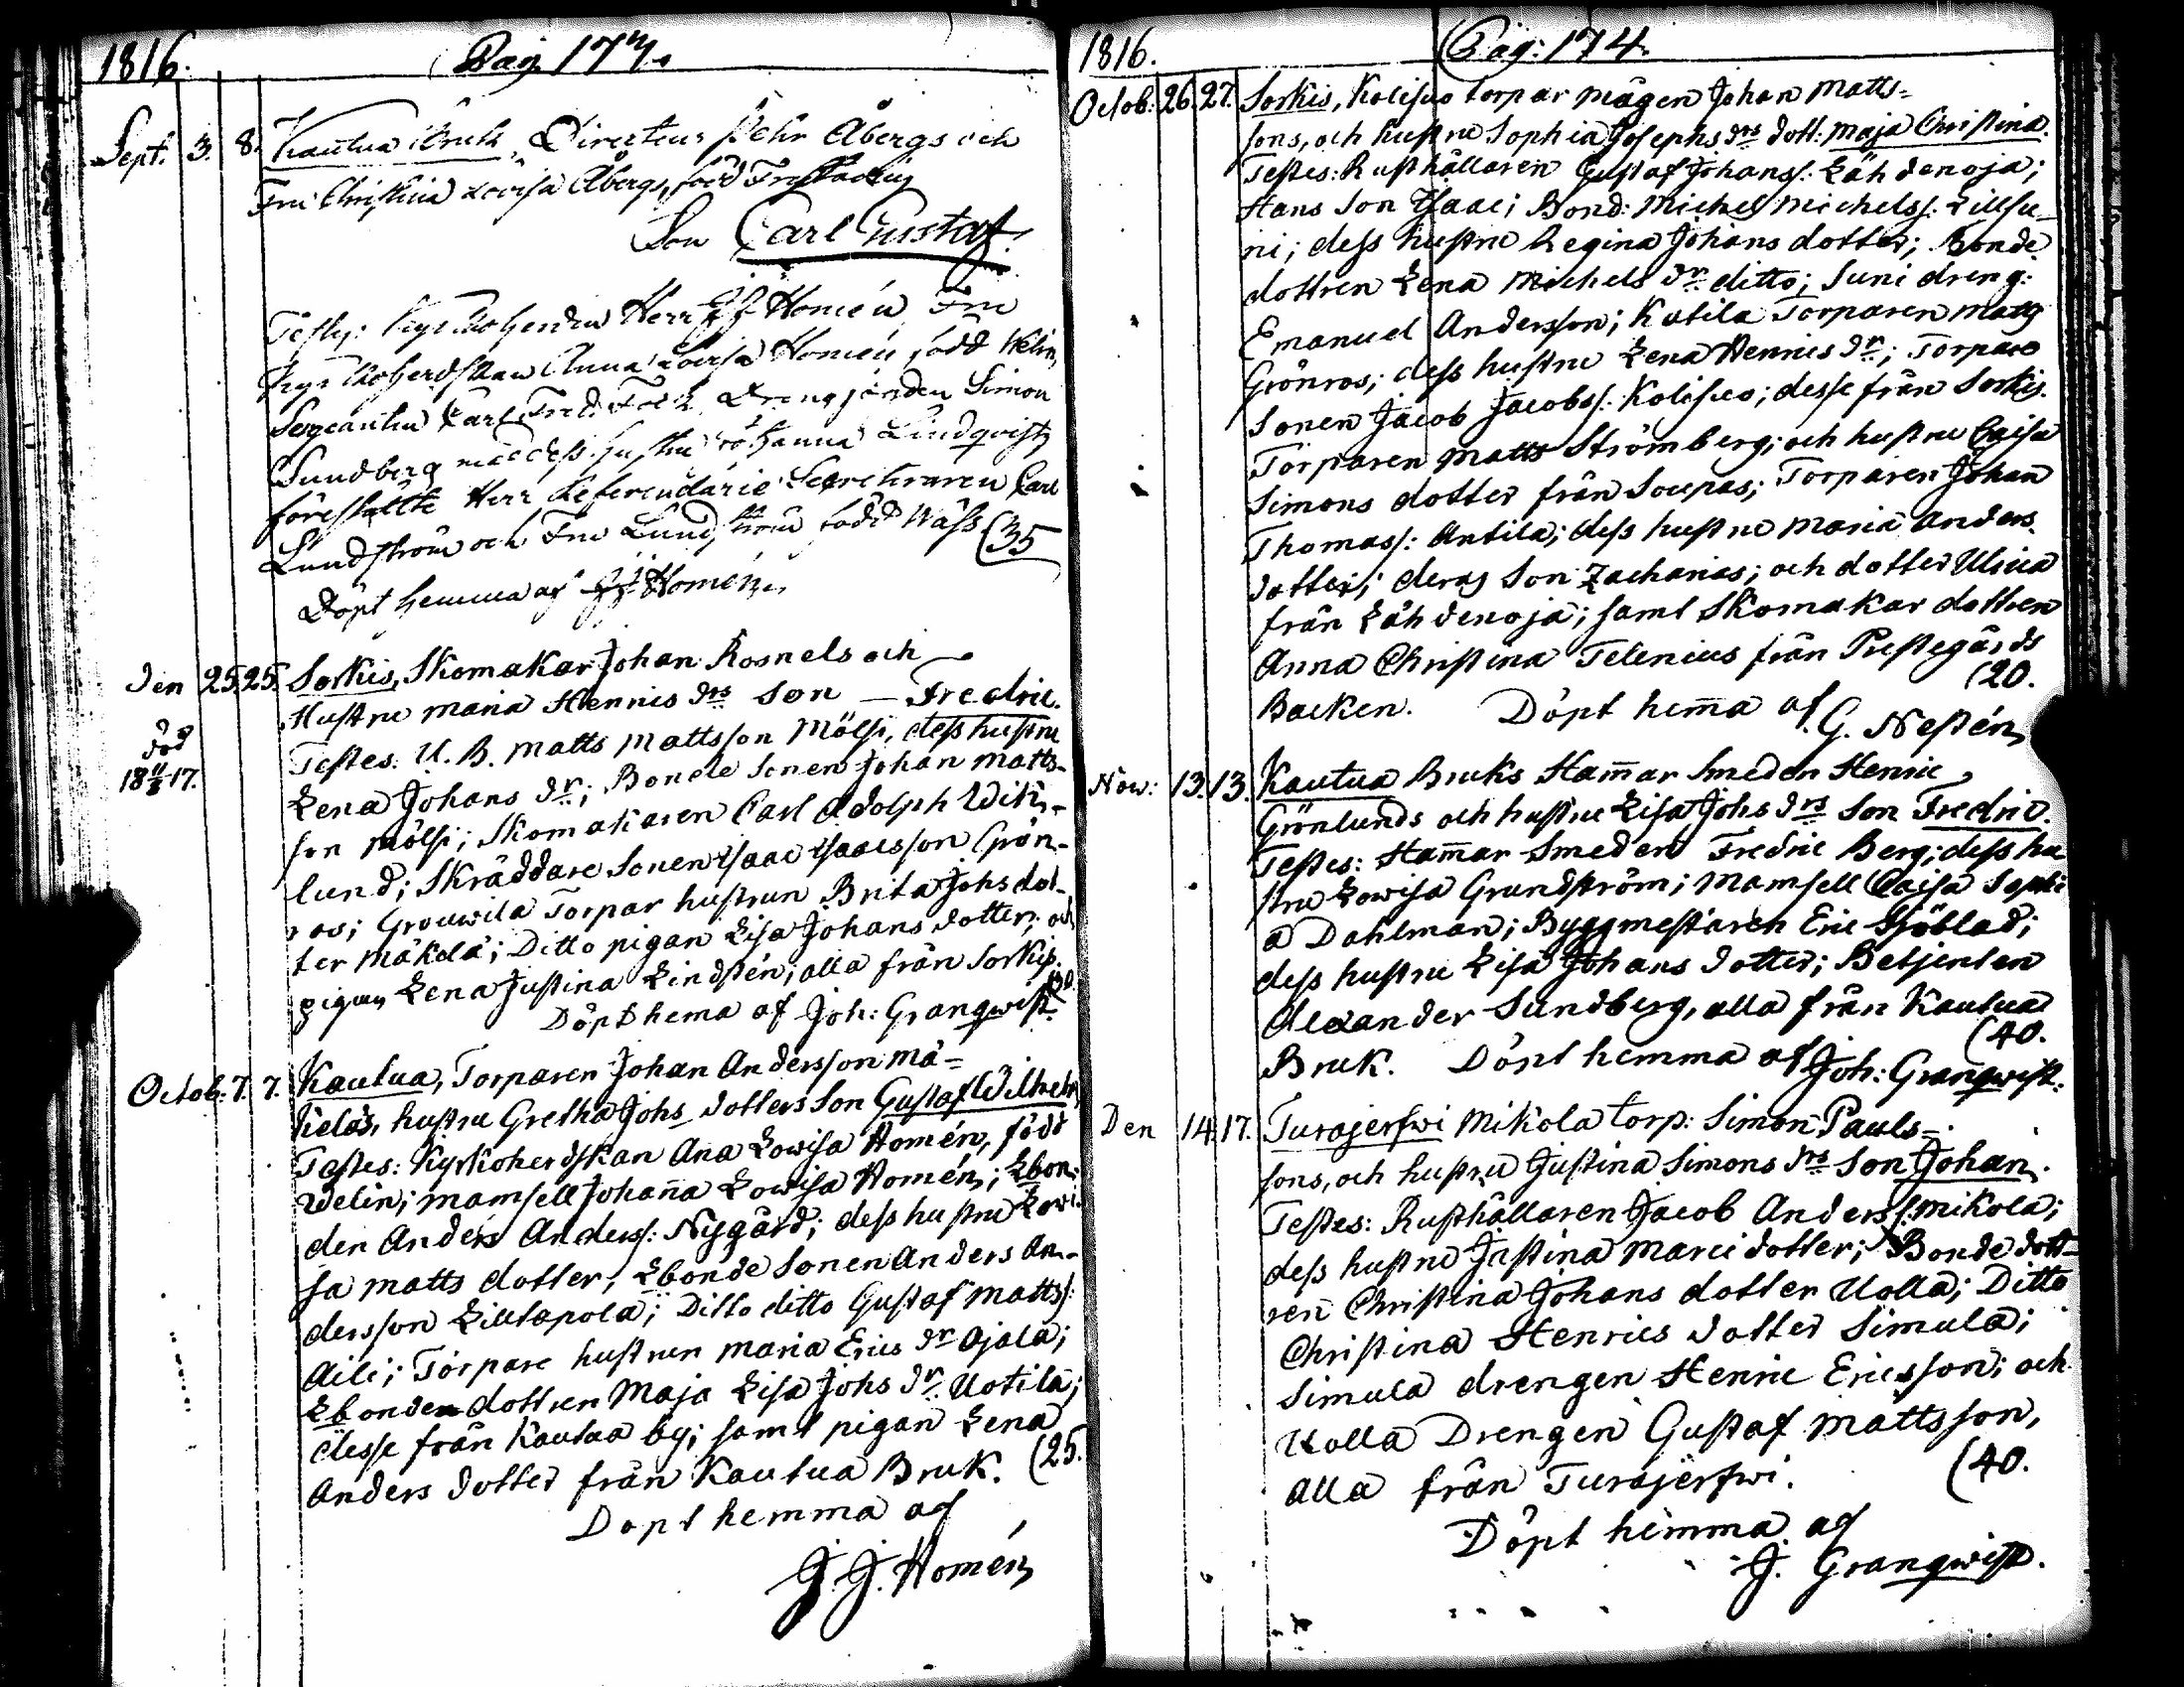 1816. Pag. 173.
Sept. 3. 8. Kautua Bruk, Directeur Pehr Åbergs och
Fru Christina Lovisa Åbergs, född
Son Carl Gustaf.
Testes: Kyrkoherden Herr J J Homén Fru
Kyrkoherdskan Anna Lovisa Homén född Welin,
Sergeanten Carl Fred. Drengjänden Simon
Sundberg med dess hustru Johanna Lindqvist,
föreställte Herr Referendarie Secreteraren Carl
Lundström och Fru Lundström född Wass (35
Döpt hemma af J J Homén.
den 25. 25. Sorkis, Skomakar Johan Rosnels och
Hustru Maria Henrics drs Son — Fredric.
död
18 11/3 17.
Testes. U. B. Matts Mattsson Mölsi, dess hustru
Lena Johans dr; Bonde Sonen Johan Matts-
son Mölsi; Skomakaren Carl Adolph Wik-
lund; Skräddare Sonen Isaac Isaacsson Grön-
ros; Grouwila Torpar hustrun Brita Johs dot-
ter Mäkelä; Ditto pigan Lisa Johans dotter; och
pigan Lena Justina Lindstén; alla från Sorkis.
Döpt hema af Joh: Grangwist.
Octob: 7. 7. Kautua, Torparen Johan Andersson Mä-
keläs, hustru Gretha Johs dotters Son Gustaf Wilhelm
Testes: Kyrkoherdskan Ana Lowisa Homén, född
Welin; Mamsell Johana Lowisa Homén; Ebon-
den Anders Anderss: Nygård; dess hustru Lowi-
sa Matts dotter; Ebonde Sonen Anders An-
dersson Lillapola; Ditto ditto Gustaf Matts:
Aili; Torpare hustrun Maria Erics dr Ojala;
Ebonde dottren Maja Lisa Johs dr Uotila;
desse från Kautua by; samt pigan Lena
Anders dotter från Kautua Bruk. (25.
Döpt hemma af
J. J. Homén
1816. Pag: 174.
Octob: 26. 27. Sorkis, Kolisuo torpar mågen Johan Matts-
sons, och hustru Sophia Josephs drs dott: Maja Christina.
Testes: Rusthållaren Gustaf Johanss: Lähdenoja;
Hans Son Isaac; Bond: Michel Michelss: Lillsu-
ni; dess hustru Regina Johans dotter; Bonde
dottren Lena Michels dr ditto; Suni dreng:
Emanuel Andersson; Katila Torparen Matts
Grönros; dess hustru Lena Henrics dr; Torpare
Sonen Jacob Jacobss: Kolisuo; desse från Sorkis.
Torparen Matts Strömberg; och hustru Caisa
Simons dotter från Soupas; Torparen Johan
Thomass: Antila; dess hustru Maria Anders
dotter; deras Son Zacharias; och dotter Ulrica
från Lähdenoja; samt Skomakar dottren
Anna Christina Telenius från Prestegårds
Backen. (20.
Döpt hema af G. Nestén,
Now: 13. 13. Kautua Bruks Hamar Smeden Henric
Grönlunds och hustru Lisa Johs drs Son Fredric.
Testes: Hamar Smeden Fredric Berg; dess hu
stru Lowisa Grundström; Mamsell Cajsa Sophi
a Dahlman; Byggmestaren Eric Sjöblad;
dess hustru Lisa Johans dotter; Betjenten
Alexander Sundberg, alla från Kautua
Bruk. (40.
Döpt hemma af Joh: Grangwist.
Den 14. 17. Turajerfwi Mikola torp: Simon Pauls-
sons, och hustru Justina Simons drs Son Johan.
Testes: Rusthållaren Jacob Anderss: Mikola;
dess hustru Justina Marci dotter; Bonde dott-
ren Christina Johans dotter Uolla; Ditto
Christina Henrics dotter Simula;
Simula drengen Henric Ericsson; och
Uolla Drengen Gustaf Mattsson,
alla från Turajerfwi. (40.
Döpt hemma af
J. Grangwist.